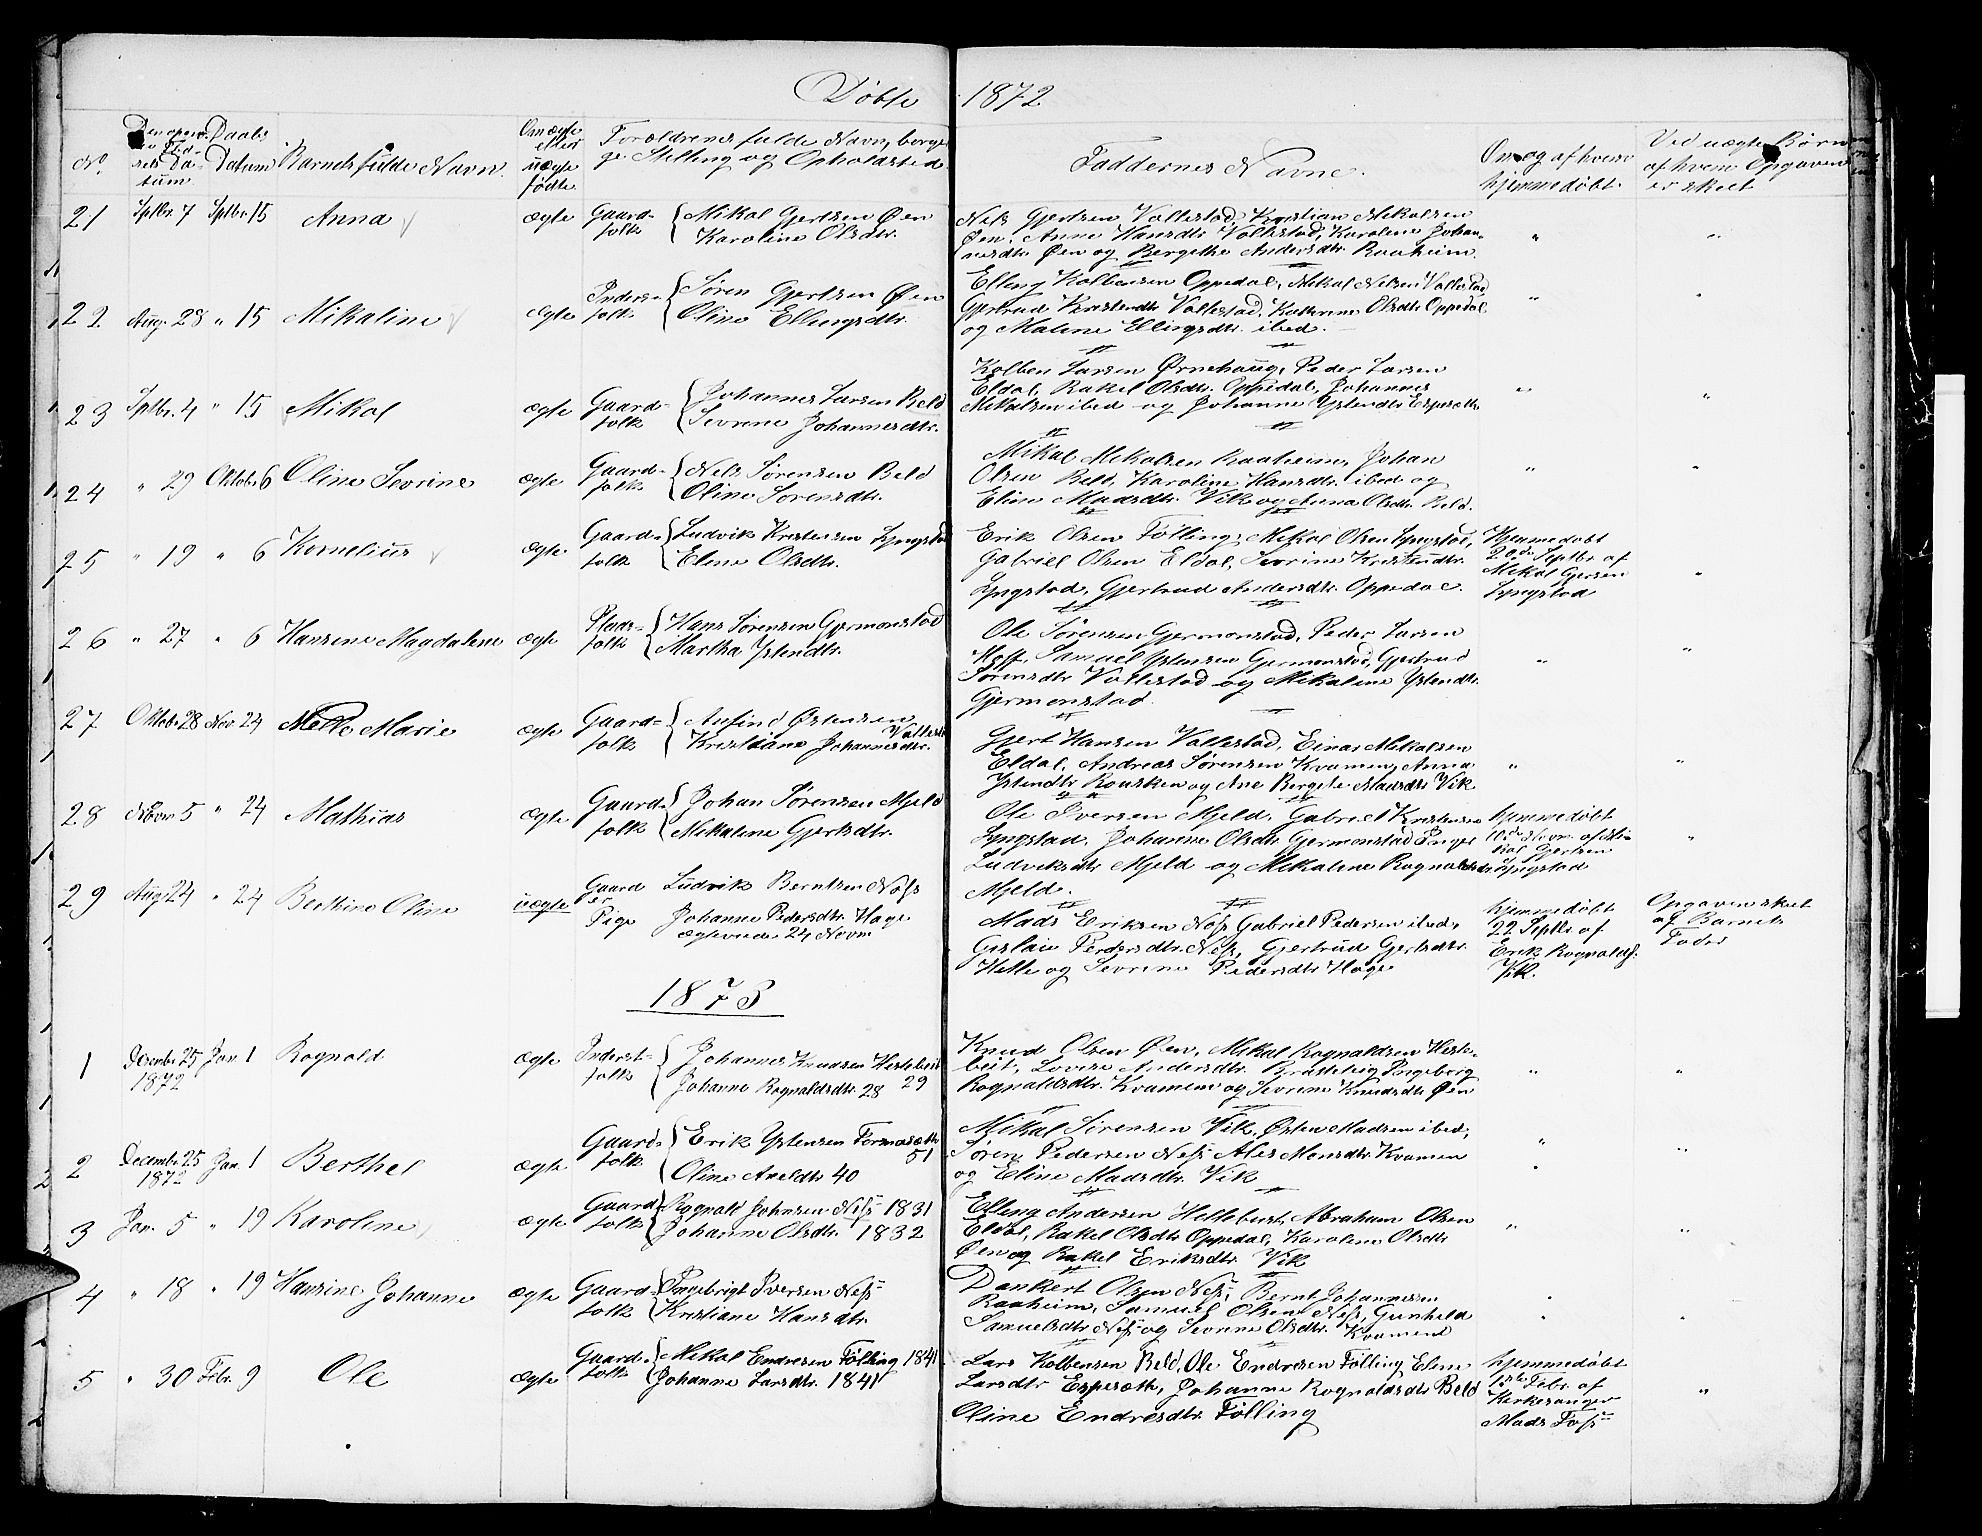 Døbte 1872
No.
Daabs
Datum
Barnets fulde Navn.
Om ægte
eller
uægte
fødte
Forældrenes fulde Navn, borger-
ge Stilling og Opholdssted.
Faddernes Navne.
Om og af hvem
hjemmedøbt.
Ved uægte Børn
af hvem Opgaven
er skeet
21 Septbr. 7 Septbr. 15 Anna ægte Gaard-
folk
Mikal Gjertsen Øen
Karoline Olsdtr.
Nels Gjertsen Vallestad, Kristian Mikalsen
Øen, Anne Hansdtr. Vallestad, Karoline Johan-
nesdtr. Øen og Bergethe Andersdtr. Raaheim.
22 Aug. 28 " 15 Mikaline ægte Inderst-
folk
Søren Gjertsen Øen
Oline Ellingsdtr.
Elling Kolbensen Oppedal, Mikal Nelsen Vallestad
Gjertrud Kristensdtr. Vallestad, Kathrine Olsdtr. Oppedal
og Malene Ellingsdtr. ibed.
23 Septbr. 4 " 15 Mikal ægte Gaard-
folk
Johannes Larsen Beld
Severine Johannesdtr.
Kolben Larsen Ørnehaug, Peder Larsen
Eldal, Rakel Olsdtr. Oppedal, Johannes
Mikalsen ibed og Johanne Ystendtr. Espesæth.
24 " 29 Oktober 6 Oline Sevrine ægte Gaard-
folk
Nels Sørensen Beld
Oline Sørensdtr.
Mikal Mikalsen Raaheim, Johan
Olsen Beld, Karoline Hansdtr. ibed og
Eline Madsdtr. Vik og Anna Olsdtr. Beld.
25 " 19 " 6 Kornelius ægte Gaard-
folk
Ludvik Kristensen Lyngstad
Elene Olsdtr.
Erik Olsen Følling, Mikal Olsen Lyngstad,
Gabriel Olsen Eldal, Sevrine Kristendtr.
Lyngstad, Gjertrud Andersdtr. Oppedal.
Hjemmedøbt
20de Septbr. af
Mikal Gjersen
Lyngstad
26 " 27 " 6 Hansine Magdalene ægte Plads-
folk
Hans Sørensen Gjermonstad
Martha Ystendtr.
Ole Sørensen Gjermonstad, Peder Larsen
Hoff, Samuel Ystensen Gjermonstad, Gjertrud
Sørensdtr. Vallestad og Mikaline Ystendtr.
Gjermonstad.
27 Oktobr. 28 Nov. 24 Mette Marie ægte Gaard-
folk
Anfind Østensen
Vallestad
Kristiane Johannesdtr.
Gjert Hansen Vallestad, Einar Mikalsen
Eldal, Andreas Sørensen Kvamen, Anna
Ystendtr. Rousken og Ane Bergete Madsdtr. Vik
28 Novm 5 " 24 Mathias ægte Gaard-
folk
Johan Sørensen Mjeld
Mikaline Gjertsdtr.
Ole Iversen Mjeld, Gabriel Kristensen
Lyngstad, Johanne Olsdtr. Gjermonstad Inger
Ludviksdtr. Mjeld og Mikaline Rognaldsdtr.
Mjeld.
hjemmedøbt
10de Novm. af Mi-
kal Gjertsen
Lyngstad
29 Aug. 24 " 24 Berthine Oline uægte Gaard
er
Pige
Ludvik Berntsen Nefs
Johanne Pedersdtr. Hage
Ægteviede 24 Novm
Mads Eriksen Nefs, Gabriel Pedersen ibed,
Gislau Pedersdtr. Nefs, Gjertrud Gjertsdtr.
Helle og Sevrine Pedersdtr. Hage
hjemmedøbt
22 Septbr. af
Erik Rognaldsf.
Vik.
Opgaven skeet
af Barnets
Fader
1873
1 Decembr. 25 Jan. 1
1872
Rognald ægte Inderst-
folk
Johannes Knudsen Hestebeit
29
Johanne Rognaldsdtr. 28
Knud Olsen Øen, Mikal Rognaldsen Heste-
beit, Lovise Andersdtr. Ingeborg
Rognaldsdtr. Kvamen og Sevrine Knudsdtr. Øen
2 Decembr. 25 Jan. 1
1872
Berthel ægte Gaard-
folk
Erik Ystensen Formosæth
51
Oline Axeldtr. 40
Mikal Sørensen Vik, Østen Madsen ibed,
Søren Pedersen Nefs, Ales Monsdtr. Kvamen
og Eline Madsdtr. Vik
3 Jan. 5 " 19 Karoline ægte Gaard-
folk
Rognald Johnsen Nefs 1831
Johanne Olsdtr. 1832
Elling Andersen Hellebust, Abraham Olsen
Eldal, Rakel Olsdtr. Oppedal, Karoline Olsdtr.
Øen og Rakel Eriksdtr. Vik
4 " 18 " 19 Hansine Johanne ægte Gaard-
folk
Ingebrigt Iversen Nefs
Kristiane Hansdtr.
Dankert Olsen Nefs, Bernt Johannessen
Raaheim, Samuel Olsen Nefs, Gunhild
Samuelsdtr. Nefs og Sevrine Olsdtr. Kvamen
5 " 30 Febr. 9 Ole ægte Gaard-
folk
Mikal Endresen Følling 1841
Johanne Larsdtr. 1841
Lars Kolbensen Beld, Ole Endresen Følling, Eline
Larsdtr. Espesæth, Johanne Rognaldsdtr. Beld
Oline Endresdtr. Følling
hjemmedøbt
1ste Febr. af
Kirkesanger
Mads Fofs